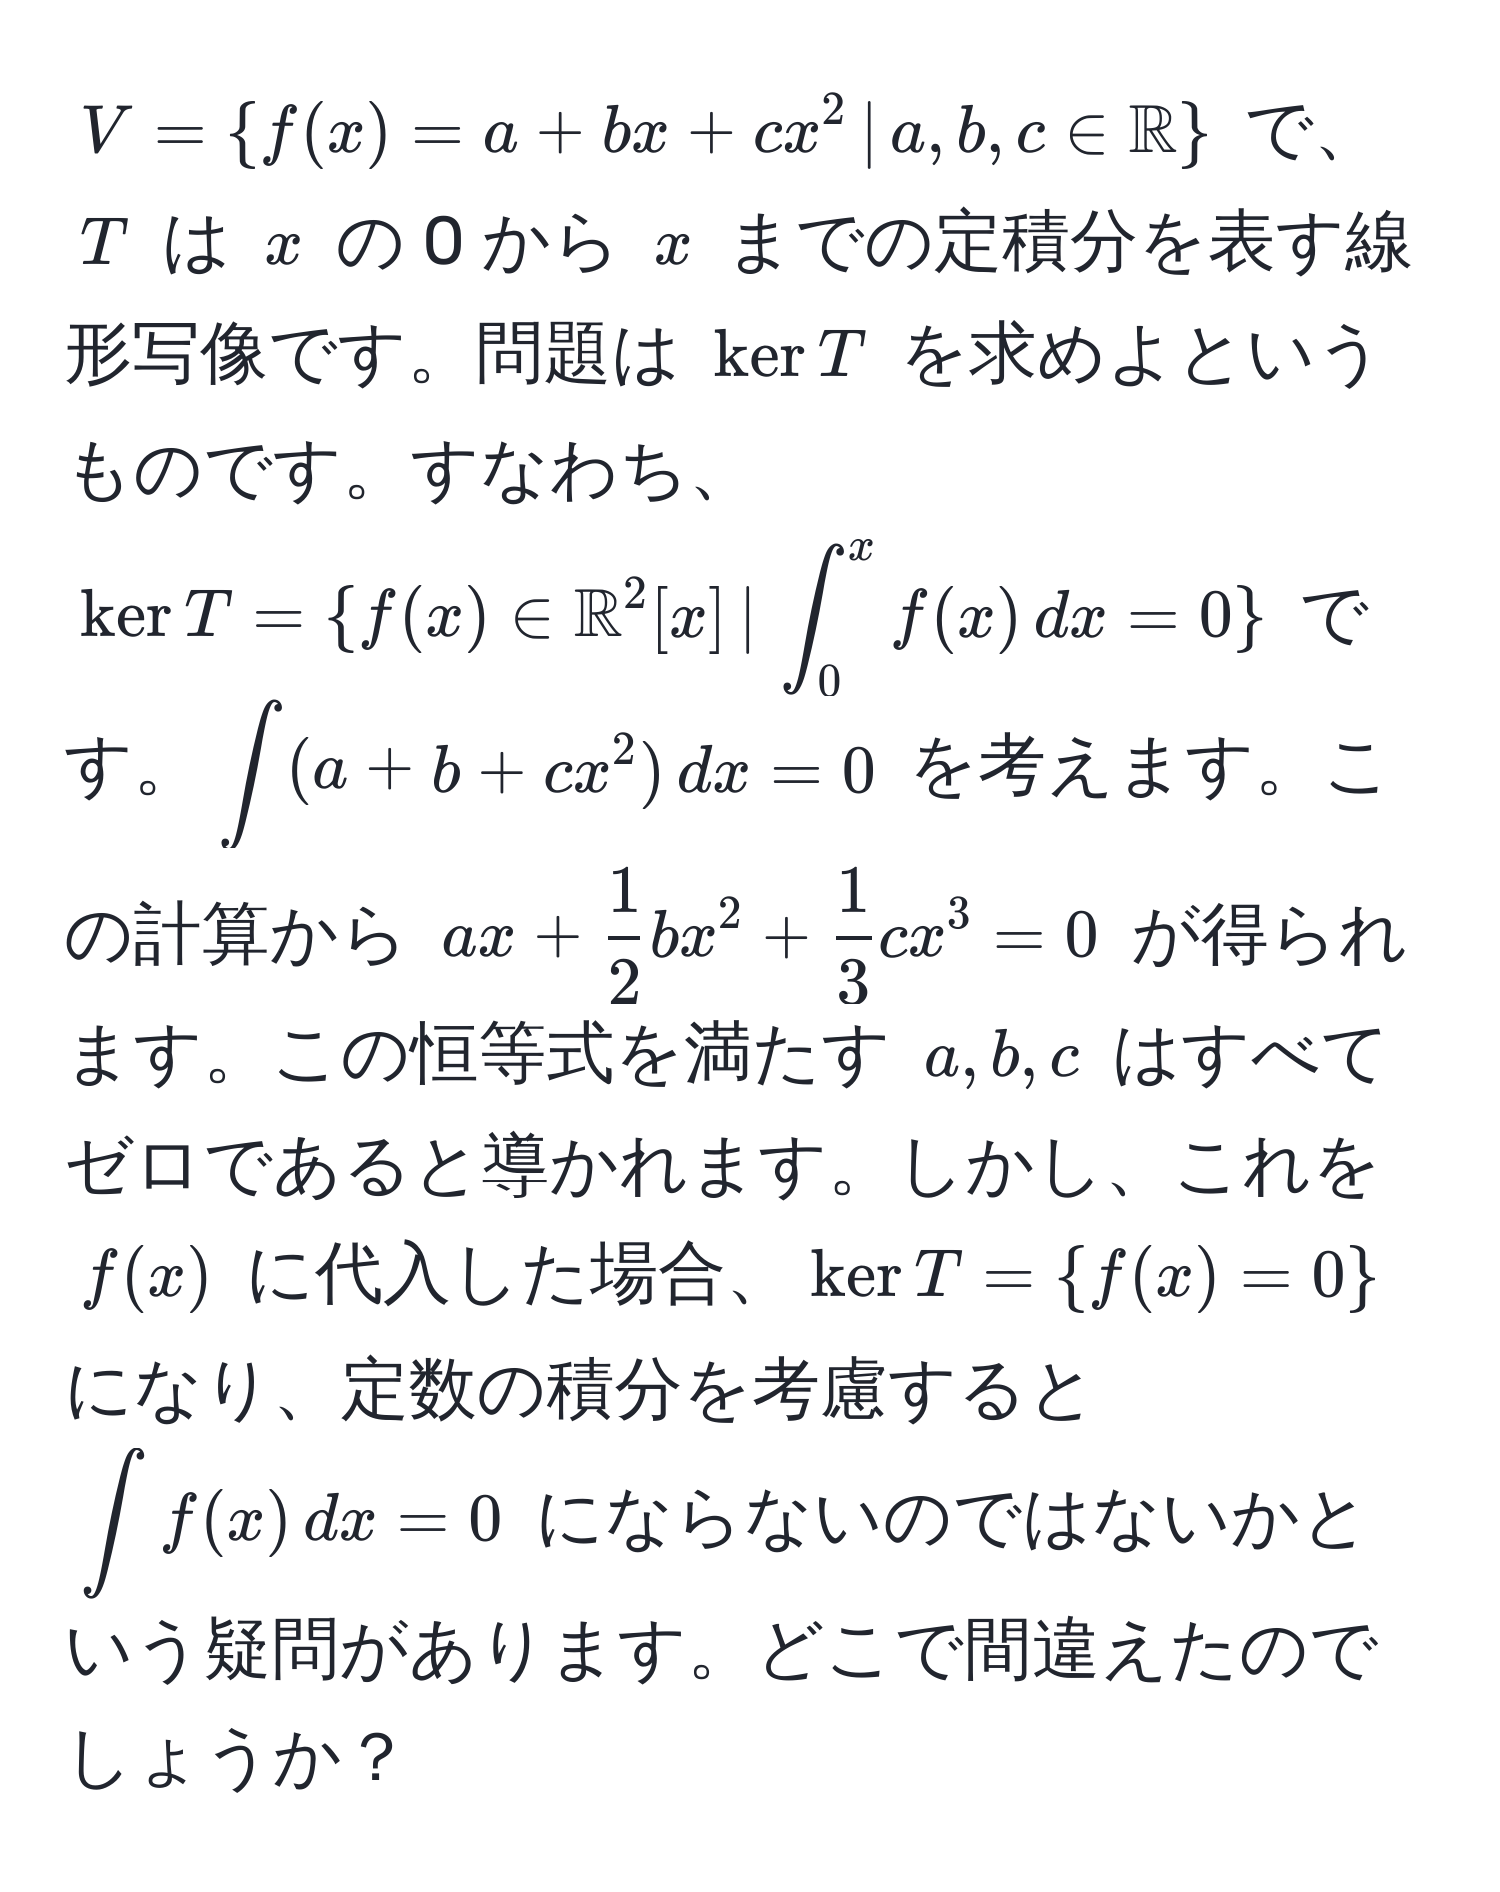 V = {f(x) = a + bx + cx² | a, b, c ∈ ℝ} で、
T は x の 0 から x までの定積分を表す線
形写像です。問題は ker T を求めよという
ものです。すなわち、
ker T = {f(x) ∈ ℝ²[x] | ∫₀ˣ f(x) dx = 0} で
す。 ∫(a + b + cx²) dx = 0 を考えます。こ
の計算から ax + \frac{1}{2}bx² + \frac{1}{3}cx³ = 0 が得られ
ます。この恒等式を満たす a, b, c はすべて
ゼロであると導かれます。しかし、これを
f(x) に代入した場合、 ker T = {f(x) = 0}
になり、定数の積分を考慮すると
∫ f(x) dx = 0 にならないのではないかと
いう疑問があります。どこで間違えたので
しょうか？